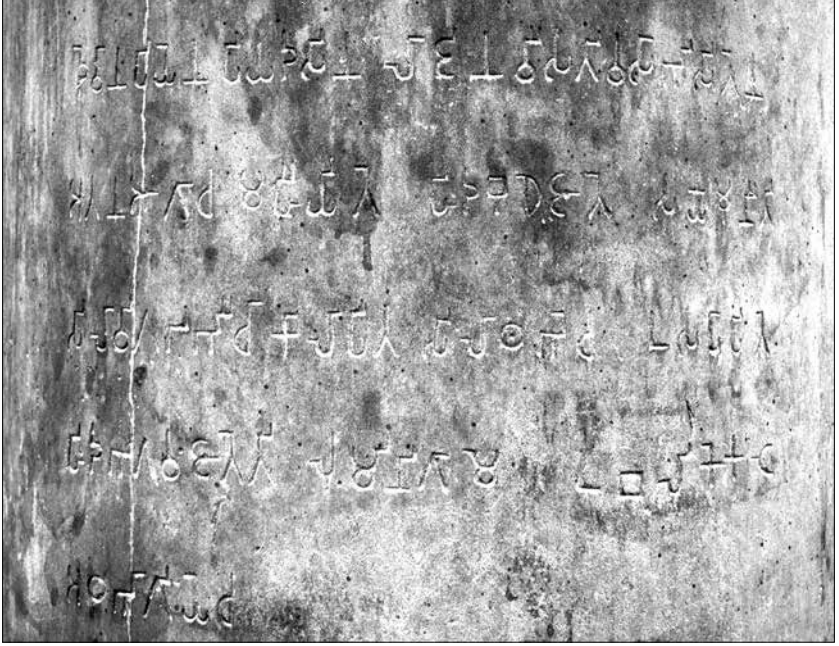 𑀤𑁂𑀯𑀸𑀦𑀧𑀺𑀬𑁂𑀦 𑀧𑀺𑀬𑀤𑀲𑀺𑀦 𑀮𑀸𑀚𑀺𑀦 𑀯𑀻𑀲𑀢𑀺𑀯𑀲𑀸𑀪𑀺𑀲𑀺𑀢𑁂𑀦
𑀅𑀢𑀦 𑀆𑀕𑀸𑀘 𑀫𑀳𑀻𑀬𑀺𑀢𑁂 𑀳𑀺𑀤 𑀩𑀼𑀥𑁂 𑀚𑀸𑀢𑁂 𑀲𑀓𑁆𑀬𑀫𑀼𑀦𑀻𑀢𑀺
𑀲𑀺𑀮𑀸𑀯𑀺𑀕𑀥𑀪𑀻𑀘𑀸 𑀓𑀸𑀮𑀸𑀧𑀺𑀢 𑀲𑀺𑀮𑀸𑀣𑀪𑁂𑀘 𑀉𑀲𑀧𑀸𑀧𑀺𑀢𑁂
𑀳𑀺𑀤 𑀪𑀕𑀯𑀁 𑀚𑀸𑀢𑁂𑀢𑀺 𑀮𑀼𑀁𑀫𑀺𑀦𑀺 𑀕𑀸𑀫𑁂 𑀉𑀩𑀮𑀺𑀓𑁂 𑀓𑀝𑁂
𑀅𑀞𑀪𑀸𑀕𑀺𑀬𑁂 𑀘